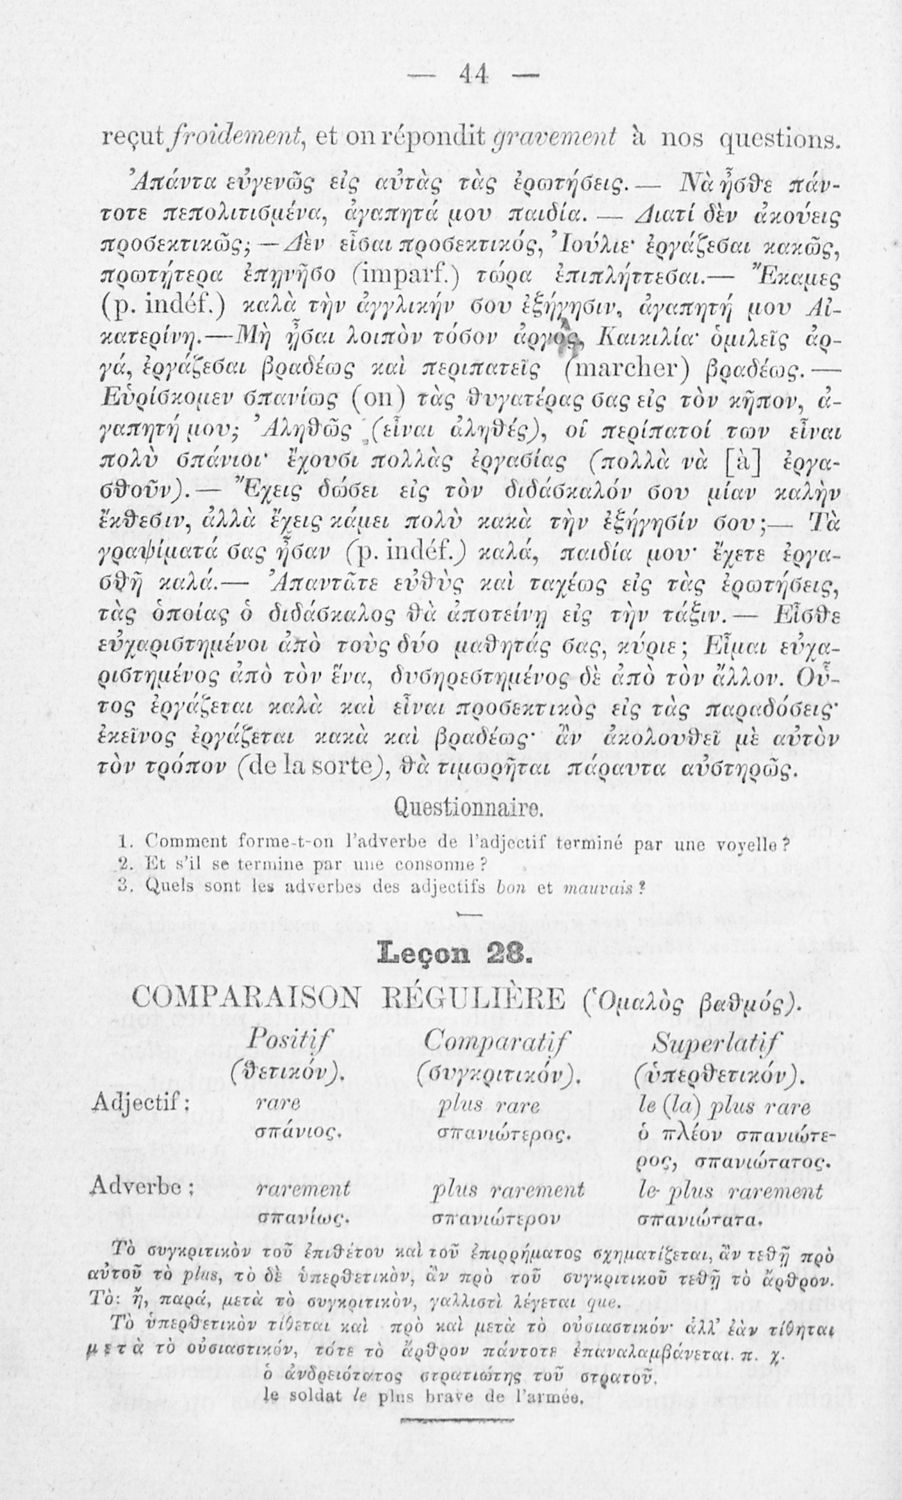 — 44 —
reçut froidement, et on répondit gravement à nos questions.
Ἀπάντα εὐγενῶς εἰς αὐτὰς τὰς ἐρωτήσεις. — Νὰ ἦσθε πάν-
τοτε πεπολιτισμένα, ἀγαπητά μου παιδία. — Διατί δὲν ἀκούεις
προσεκτικῶς; — Δὲν εἶσαι προσεκτικός, Ἰούλιε· ἐργάζεσαι κακῶς,
πρωτήτερα ἐπῃνῆσο (imparf.) τώρα ἐπιπλήττεσαι.— Ἔκαμες
(p. indéf.) καλὰ τὴν ἀγγλικήν σου ἐξήγησιν, ἀγαπητή μου Αἰ-
κατερίνη.—Μὴ ἦσαι λοιπὸν τόσον ἀργός, Καικιλία· ὁμιλεῖς ἀρ-
γά, ἐργάζεσαι βραδέως καὶ περιπατεῖς (marcher) βραδέως. —
Εὑρίσκομεν σπανίως (on) τὰς θυγατέρας σας εἰς τὸν κῆπον, ἀ-
γαπητή μου; Ἀληθῶς (εἶναι ἀληθές), οἱ περίπατοί των εἶναι
πολὺ σπάνιοι· ἔχουσι πολλὰς ἐργασίας (πολλὰ νὰ [à] ἐργα-
σθοῦν).— Ἔχεις δώσει εἰς τὸν διδάσκαλόν σου μίαν καλὴν
ἔκθεσιν, ἀλλὰ ἔχεις κάμει πολὺ κακὰ τὴν ἐξήγησίν σου;— Τὰ
γραψίματά σας ἦσαν (p. indéf.) καλά, παιδία μου· ἔχετε ἐργα-
σθῆ καλά.— Ἀπαντᾶτε εὐθὺς καὶ ταχέως εἰς τὰς ἐρωτήσεις,
τὰς ὁποίας ὁ διδάσκαλος θὰ ἀποτείνῃ εἰς τὴν τάξιν.— Εἶσθε
εὐχαριστημένοι ἀπὸ τοὺς δύο μαθητάς σας, κύριε; Εἶμαι εὐχα-
ριστημένος ἀπὸ τὸν ἕνα, δυσηρεστημένος δὲ ἀπὸ τὸν ἄλλον. Οὗ-
τος ἐργάζεται καλὰ καὶ εἶναι προσεκτικὸς εἰς τὰς παραδόσεις·
ἐκεῖνος ἐργάζεται κακὰ καὶ βραδέως· ἂν ἀκολουθεῖ μὲ αὐτὸν
τὸν τρόπον (de la sorte), θὰ τιμωρῆται πάραυτα αὐστηρῶς.
Questionnaire.
1. Comment forme-t-on l'adverbe de l'adjectif terminé par une voyelle?
2. Et s'il se termine par une consonne?
3. Quels sont les adverbes des adjectifs bon et mauvais?
Leçon 28.
COMPARAISON RÉGULIÈRE (Ὁμαλὸς βαθμός).
Positif Comparatif Superlatif
(θετικόν). (συγκριτικόν). (ὑπερθετικόν).
Adjectif: rare plus rare le (la) plus rare
σπάνιος. σπανιώτερος. ὁ πλέον σπανιώτε-
ρος, σπανιώτατος.
Adverbe: rarement plus rarement le plus rarement
σπανίως. σπανιώτερον σπανιώτατα.
Τὸ συγκριτικὸν τοῦ ἐπιθέτου καὶ τοῦ ἐπιρρήματος σχηματίζεται, ἂν τεθῇ πρὸ
αὐτοῦ τὸ plus, τὸ δὲ ὑπερθετικὸν, ἂν πρὸ τοῦ συγκριτικοῦ τεθῇ τὸ ἄρθρον.
Τὸ: ἤ, παρά, μετὰ τὸ συγκριτικὸν, γαλλιστὶ λέγεται que.
Τὸ ὑπερθετικὸν τίθεται καὶ πρὸ καὶ μετὰ τὸ οὐσιαστικόν· ἀλλ' ἐὰν τίθηται
μετὰ τὸ οὐσιαστικόν, τότε τὸ ἄρθρον πάντοτε ἐπαναλαμβάνεται. π. χ.
ὁ ἀνδρειότατος στρατιώτης τοῦ στρατοῦ.
le soldat le plus brave de l'armée.